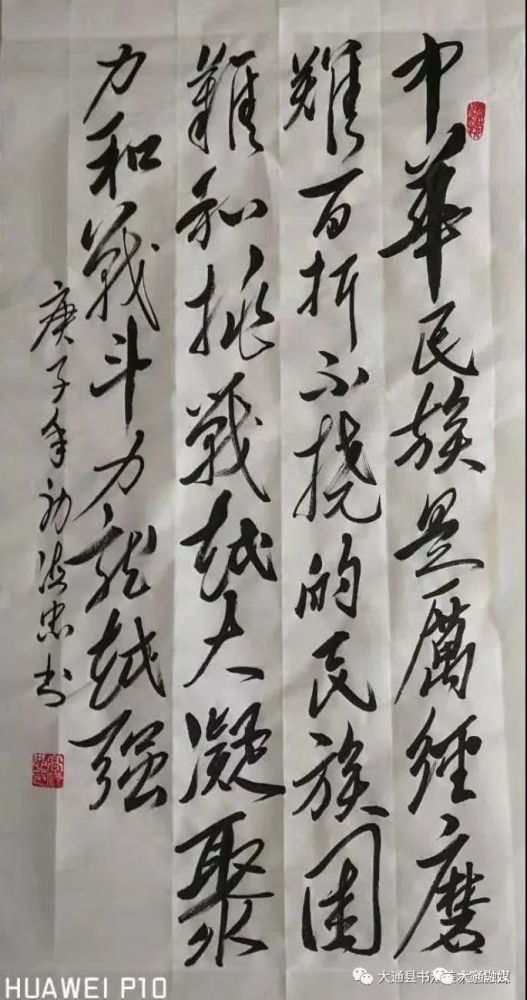 中華民族是厲經磨
難百折不挠的民族困
難和挑戰越大凝聚
力和戰斗力就越强
庚子年初忠书
HUAWEI P10
大通融媒